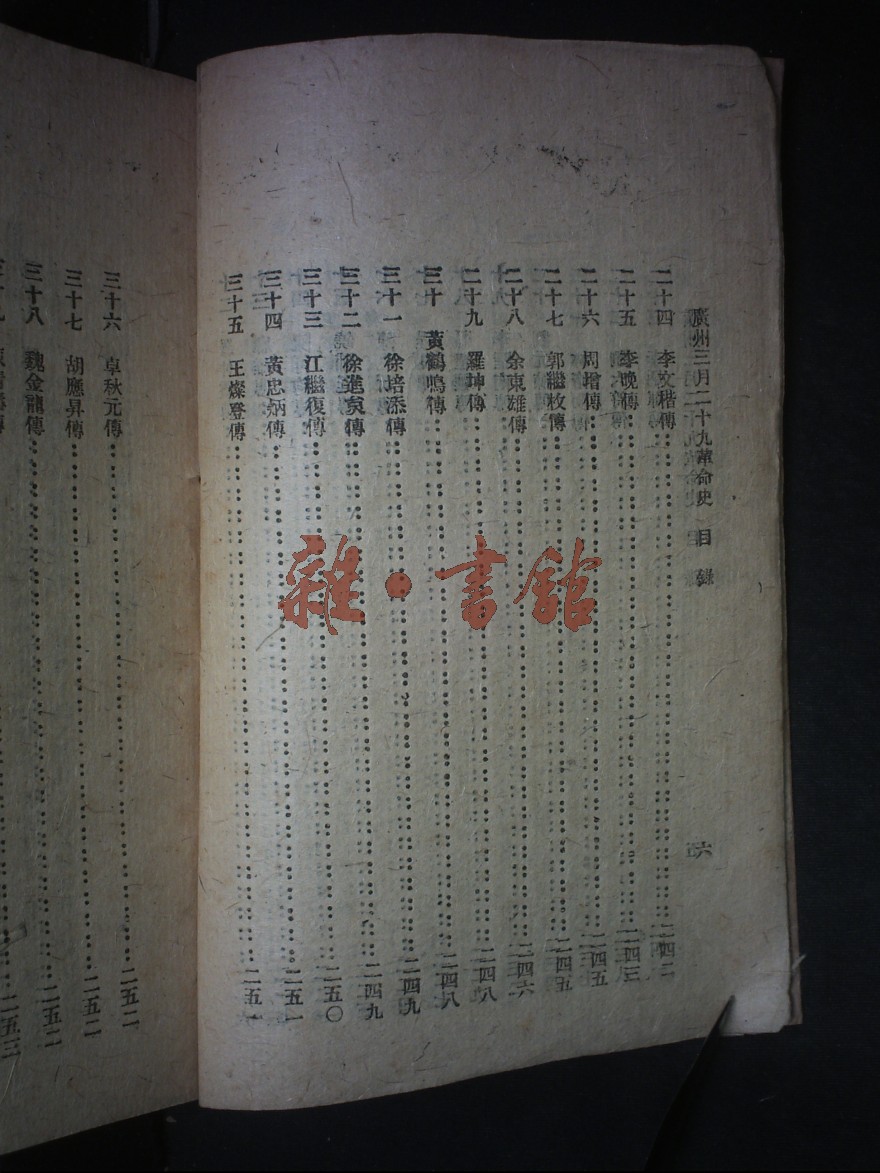 廣州三月二十九革命史 目錄 六
二十四 李文楷傳 二四二
二十五 李晚傳 二四三
二十六 周增傳 二四五
二十七 郭繼枚傳 二四五
二十八 余東雄傳 二四六
二十九 羅坤傳 二四八
三十 黃鶴鳴傳 二四八
三十一 徐培添傳 二四九
三十二 徐進炱傳 二四九
三十三 江繼復傳 二五〇
三十四 黃忠炳傳 二五一
三十五 王燦登傳 二五一
三十六 卓秋元傳 二五二
三十七 胡應昇傳 二五二
三十八 魏金龍傳 二五二
二五三
雜·書館